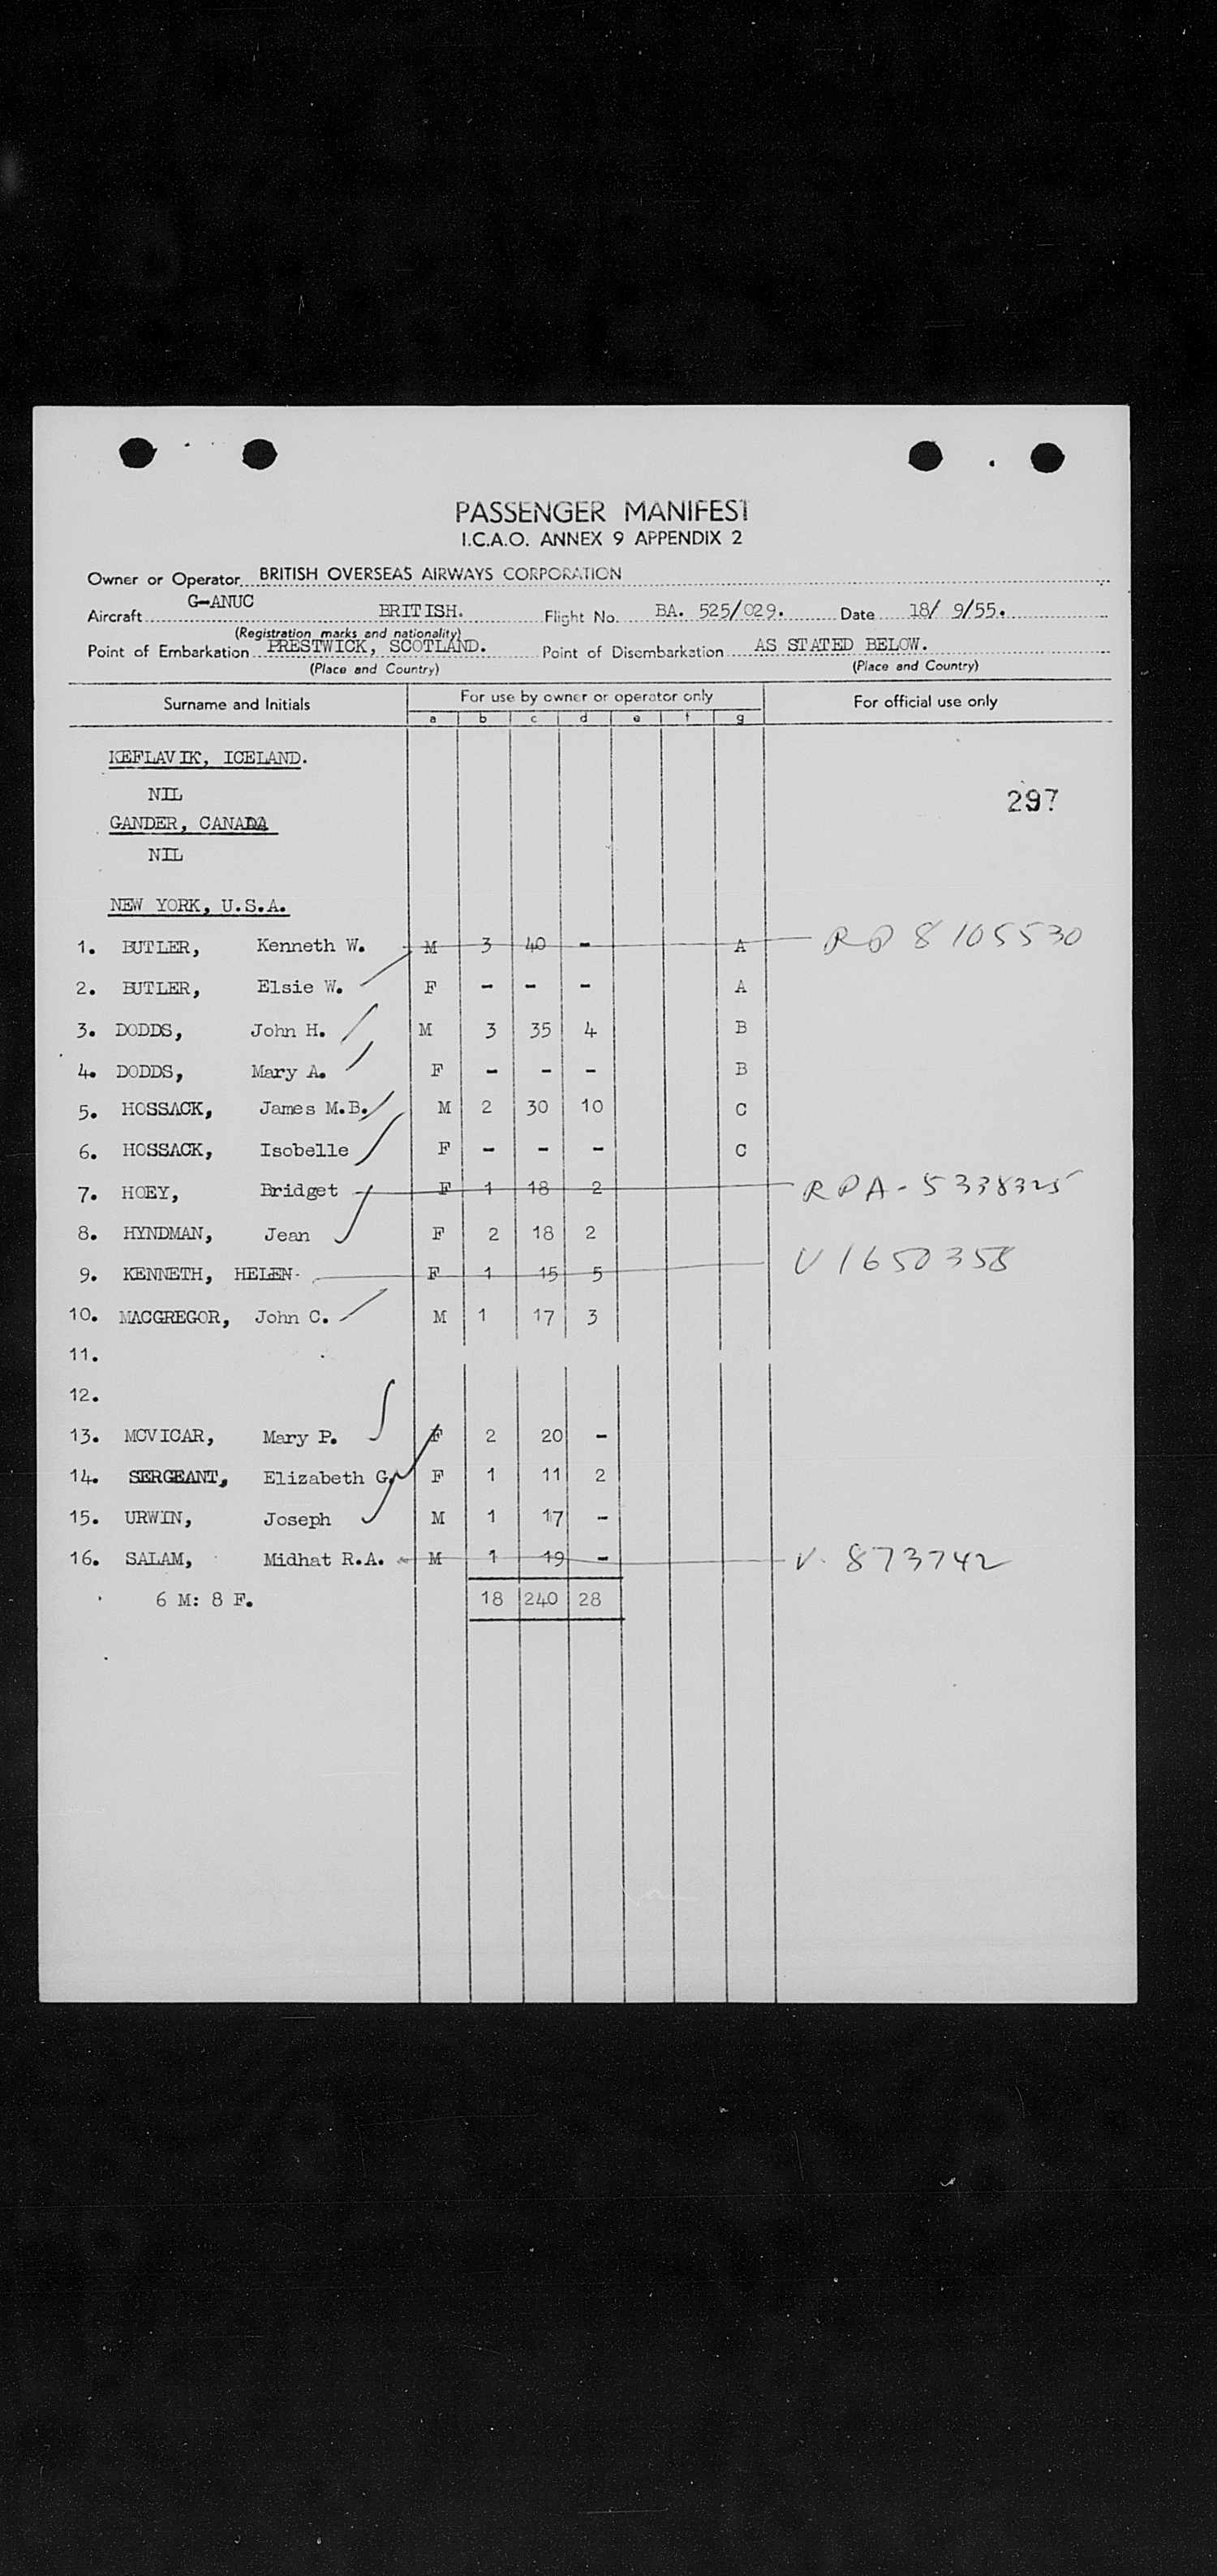 PASSENGER MANIFEST
I.C.A.O. ANNEX 9 APPENDIX 2
Owner or Operator BRITISH OVERSEAS AIRWAYS CORPORATION
Aircraft G-ANUC BRITISH. Flight No. BA. 525/029. Date 18/ 9/55.
(Registration marks and nationality)
Point of Embarkation PRESTWICK, SCOTLAND. Point of Disembarkation AS STATED BELOW.
(Place and Country) (Place and Country)
Surname and Initials For use by owner or operator only For official use only
a b c d e f g
KEFLAVIK, ICELAND.
NIL 297
GANDER, CANADA
NIL
NEW YORK, U.S.A.
1. BUTLER, Kenneth W. M 3 40 - A RP 8105530
2. BUTLER, Elsie W. F - - - A
3. DODDS, John H. M 3 35 4 B
4. DODDS, Mary A. F - - - B
5. HOSSACK, James M.B. M 2 30 10 C
6. HOSSACK, Isobelle F - - - C
7. HOEY, Bridget F 1 18 2 RPA-5338325
8. HYNDMAN, Jean F 2 18 2
9. KENNETH, HELEN. F 1 15 5 V1650358
10. MACGREGOR, John C. M 1 17 3
11.
12.
13. MCVICAR, Mary P. F 2 20 -
14. SERGEANT, Elizabeth G. F 1 11 2
15. URWIN, Joseph M 1 17 -
16. SALAM, Midhat R.A. M 1 19 - V. 873742
6 M: 8 F. 18 240 28